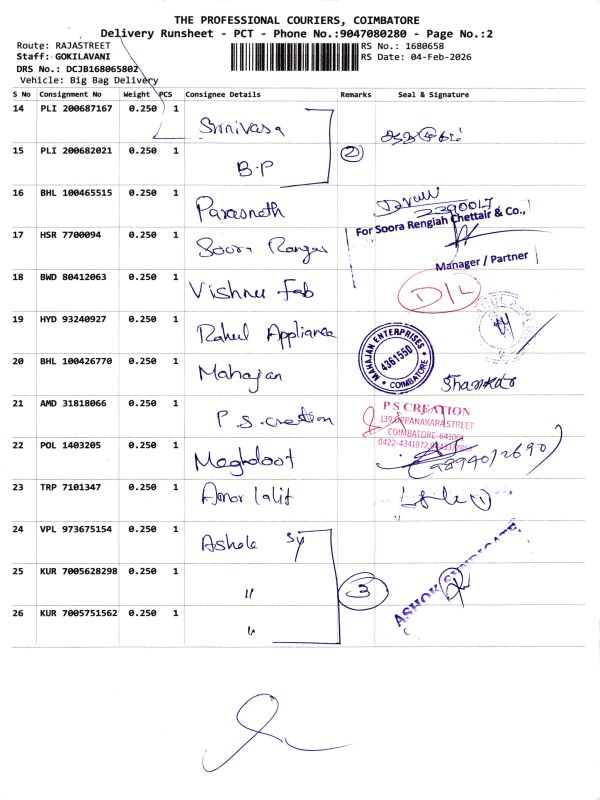 THE PROFESSIONAL COURIERS, COIMBATORE
Delivery Runsheet - PCT - Phone No.:9047080280 - Page No.:2
Route: RAJASTREET
RS No.: 1680658
Staff: GOKILAVANI
RS Date: 04-Feb-2026
DRS No.: DCJB168065802
Vehicle: Big Bag Delivery
S No Consignment No Weight PCS Consignee Details Remarks Seal & Signature
14 PLI 200687167 0.250 1 Srinivasa
15 PLI 200682021 0.250 1 B.P 2
16 BHL 100465515 0.250 1 Parasnath
For Soora Rengiah Chettair & Co.,
17 HSR 7700094 0.250 1 Soora Rangas
Manager / Partner
18 BWD 80412063 0.250 1 Vishnu Fab D/L
19 HYD 93240927 0.250 1 Rahul Appliance
20 BHL 100426770 0.250 1 Mahajan MAHAJAN ENTERPRISES 4361550 COIMBATORE Shankar
21 AMD 31818066 0.250 1 P.S.creation P S CREATION
139, UPPANAKARA STREET
COIMBATORE-641001
0422-4341872,
22 POL 1403205 0.250 1 Meghdoot 9894012690
23 TRP 7101347 0.250 1 Amar lalit
24 VPL 973675154 0.250 1 Ashok Sy
25 KUR 7005628298 0.250 1 " 3 ASHOK SYNDICATE
26 KUR 7005751562 0.250 1 "